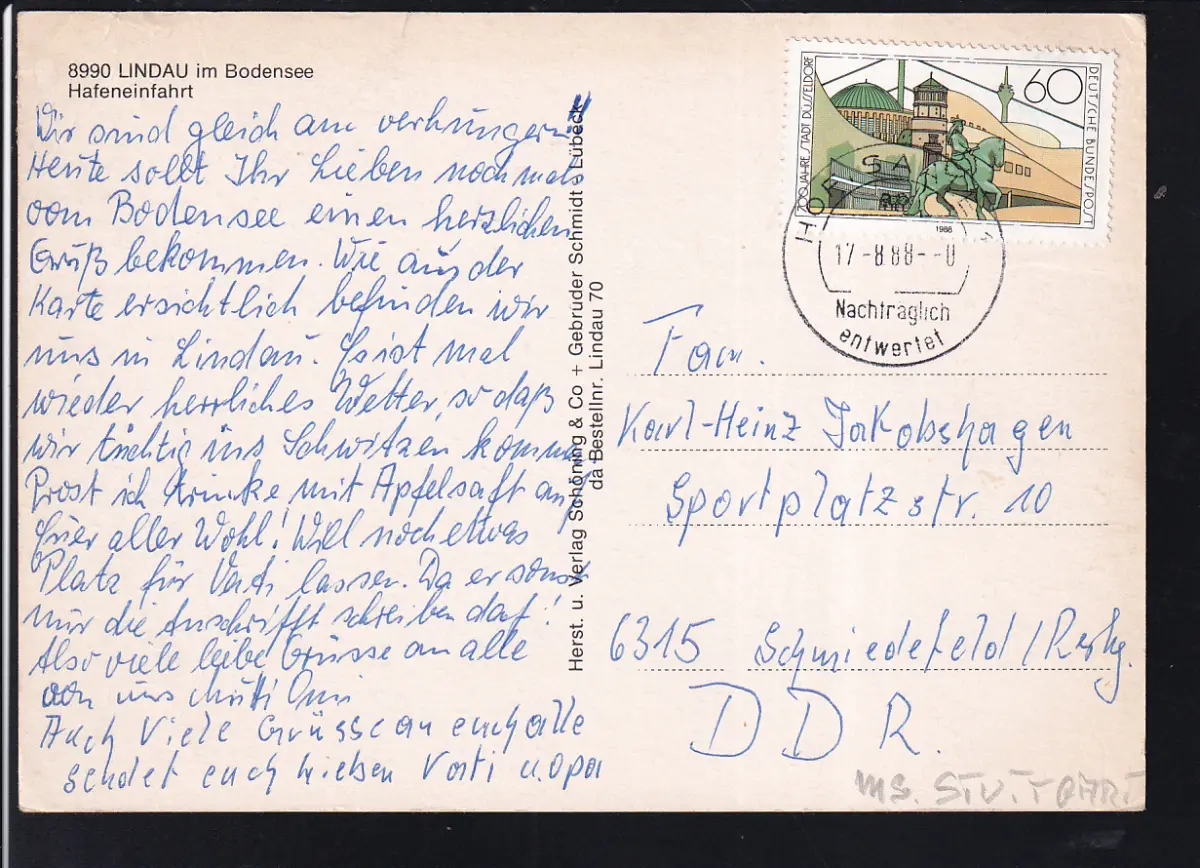 8990 LINDAU im Bodensee
Hafeneinfahrt
Wir sind gleich am verhungern!
Heute sollt Ihr Lieben nochmals
vom Bodensee einen herzlichen
Gruß bekommen. Wie aus der
Karte ersichtlich befinden wir
uns in Lindau. Es ist mal
wieder herrliches Wetter, so daß
wir tüchtig ins Schwitzen kommen
Prost ich trinke mit Apfelsaft auf
Euer aller Wohl! Will noch etwas
Platz für Vati lassen. Da er sonst
nur die Anschrifft schreiben darf!
Also viele liebe Grüsse an alle
von uns Mutti Omi
Auch Viele Grüsse an euch alle
sendet euch lieben Vati u. opa
Herst. u. Verlag Schöning & Co + Gebrüder Schmidt Lübeck
da Bestellnr. Lindau 70
700 JAHRE STADT DÜSSELDORF
60
DEUTSCHE BUNDESPOST
1988
17-8.88--0
Nachträglich
entwertet
Fam.
Karl-Heinz Jakobshagen
Sportplatzstr. 10
6315 Schmiedefeld/Rstg.
DDR.
MS. STUTTGART